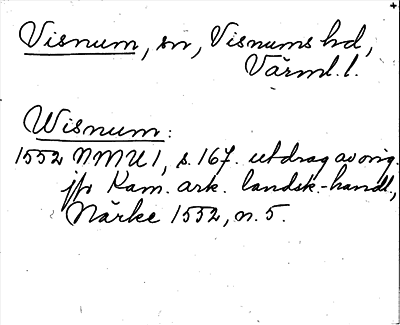 Visnum, sn, Visnums hd,
Värml. l.
Wisnum:
1552 NMU 1, s. 167. utdrag av orig.
jfr Kam. ark. landsk.-handl.,
Närke 1552, n. 5.